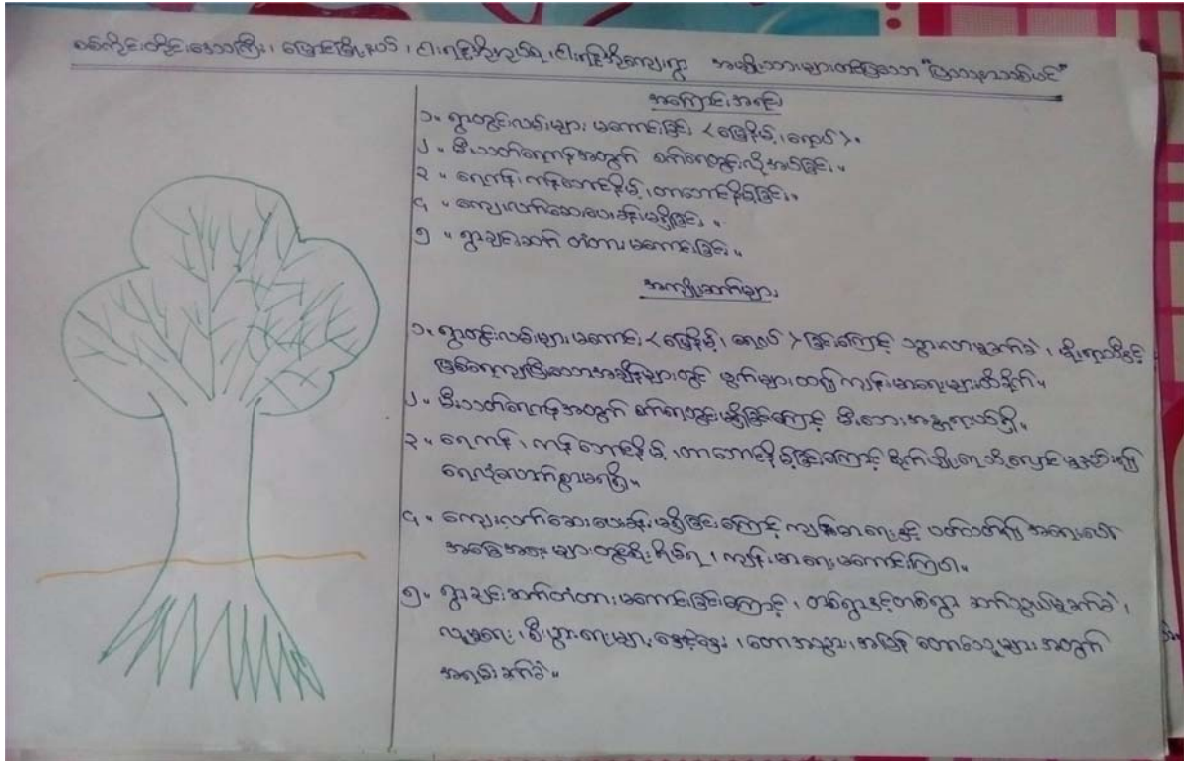 စစ်ကိုင်းတိုင်းဒေသကြီး၊ မြောင်မြို့နယ်၊ အမျိုးသားများတင်ပြသော "ပြဿနာသစ်ပင်"
အကြောင်းအရင်း
၁။ ရွာတွင်းလမ်းများ မကောင်းခြင်း <မြေနိမ့်၊ ရေဝပ်>။
၂။ မီးသတ်ရေကန်အတွက် စက်ရေတွင်းလိုအပ်ခြင်း။
၃။ ရေကန်၊ ကန်ဘောင်နိမ့်၊ တာဘောင်နိမ့်ခြင်း။
၄။ ကျေးလက်ဆေးပေးခန်းမရှိခြင်း။
၅။ ရွာချင်းဆက် တံတားမကောင်းခြင်း။
အကျိုးဆက်များ
၁။ ရွာတွင်းလမ်းများမကောင်း <မြေနိမ့်၊ ရေဝပ်> ခြင်းကြောင့် သွားလာမှုခက်ခဲ၊ မိုးရာသီနှင့်
မြစ်ရေကျပြီးသောအချိန်များတွင် ကျန်းမာရေးများထိခိုက်။
၂။ မီးသတ်ရေကန်အတွက် စက်ရေတွင်းမရှိခြင်းကြောင့် မီးဘေးအန္တရာယ်ရှိ။
၃။ ရေကန်၊ ကန်ဘောင်နိမ့်၊ တာဘောင်နိမ့်ခြင်းကြောင့် စိုက်ပျိုးရေ
ရေလုံလောက်စွာမရရှိ။
၄။ ကျေးလက်ဆေးပေးခန်းမရှိခြင်းကြောင့် ကျန်းမာရေးနှင့် ပတ်သတ်၍ အရေးပေါ်
အခြေအနေများတွင်စိုးရိမ်ရ၊ ကျန်းမာရေးမကောင်းကြပါ။
၅။ ရွာချင်းဆက်တံတားမကောင်းခြင်းကြောင့်၊ တစ်ရွာနှင့်တစ်ရွာ ဆက်သွယ်မှုခက်ခဲ၊
လူမှုရေး၊ စီးပွားရေးများ နှောင့်နှေး၊ တောအသွား၊ အပြန် တောင်သူများအတွက်
အရမ်းခက်ခဲ။